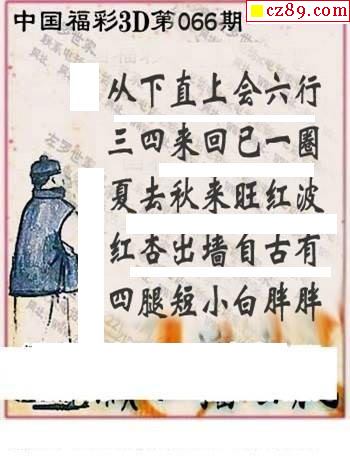 cz89.com
中国福彩3D第066期
从下直上会六行
三四来回已一圈
夏去秋来旺红波
红杏出墙自古有
四腿短小白胖胖